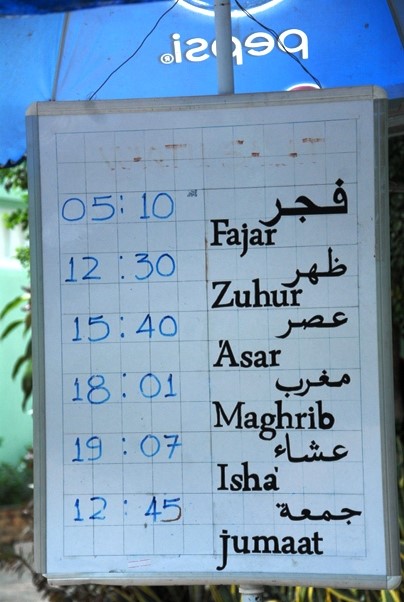 pepsi®
05:10 فجر
Fajar
12:30 ظهر
Zuhur
15:40 عصر
'Asar
18:01 مغرب
Maghrib
19:07 عشاء
Isha'
12:45 جمعة
jumaat